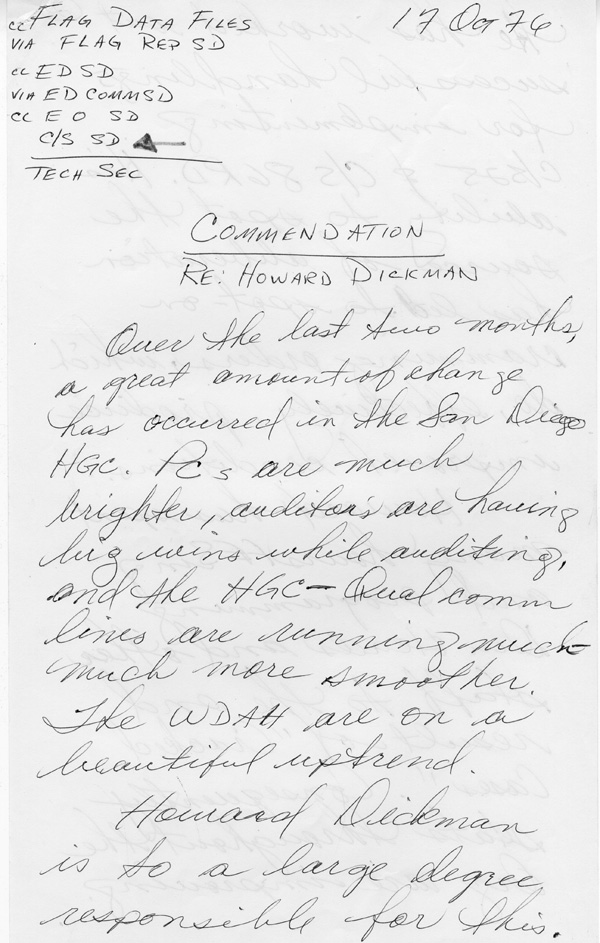 cc FLAG DATA FILES
VIA FLAG REP SD
17 Oct 76
cc ED SD
VIA ED COMM SD
cc E O SD
C/S SD
TECH SEC
COMMENDATION
RE: HOWARD DICKMAN
Over the last two months,
a great amount of change
has occurred in the San Diego
HGC. PCs are much
brighter, auditors are having
big wins while auditing,
and the HGC - Qual comm
lines are running much-
much more smoother.
The WDAH are on a
beautiful uptrend.
Howard Dickman
is to a large degree
responsible for this.